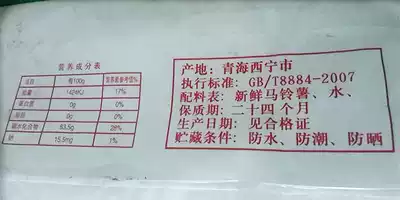 营养成分表
项目 每100g 营养素参考值%
能量 1424KJ 17%
蛋白质 0g 0%
脂肪 0g 0%
碳水化合物 83.5g 28%
钠 15.5mg 1%
产地: 青海西宁市
执行标准: GB/T8884-2007
配料表: 新鲜马铃薯、水、
保质期: 二十四个月
生产日期: 见合格证
贮藏条件: 防水、防潮、防晒